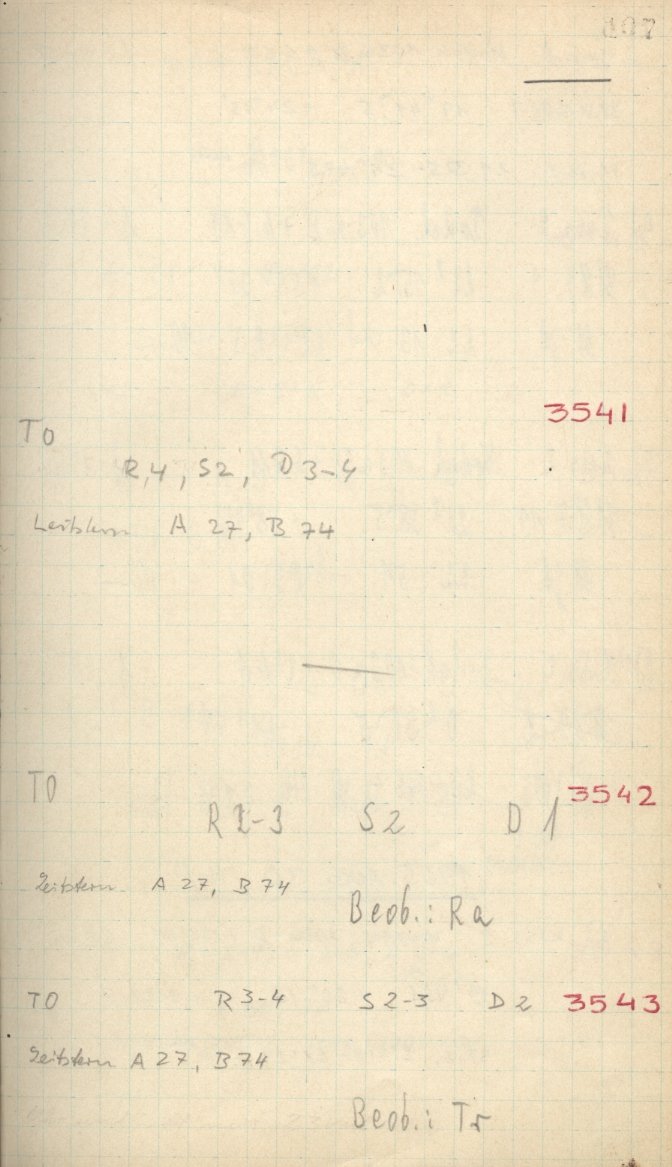 107
3541
TO
R 4, S2, D 3-4
Leitstern A 27, B 74
TO
3542
R 2-3 S2 D 1
Leitstern A 27, B 74
Beob.: Ra
TO R 3-4 S 2-3 D 2 3543
Leitstern A 27, B 74
Beob.: Tr